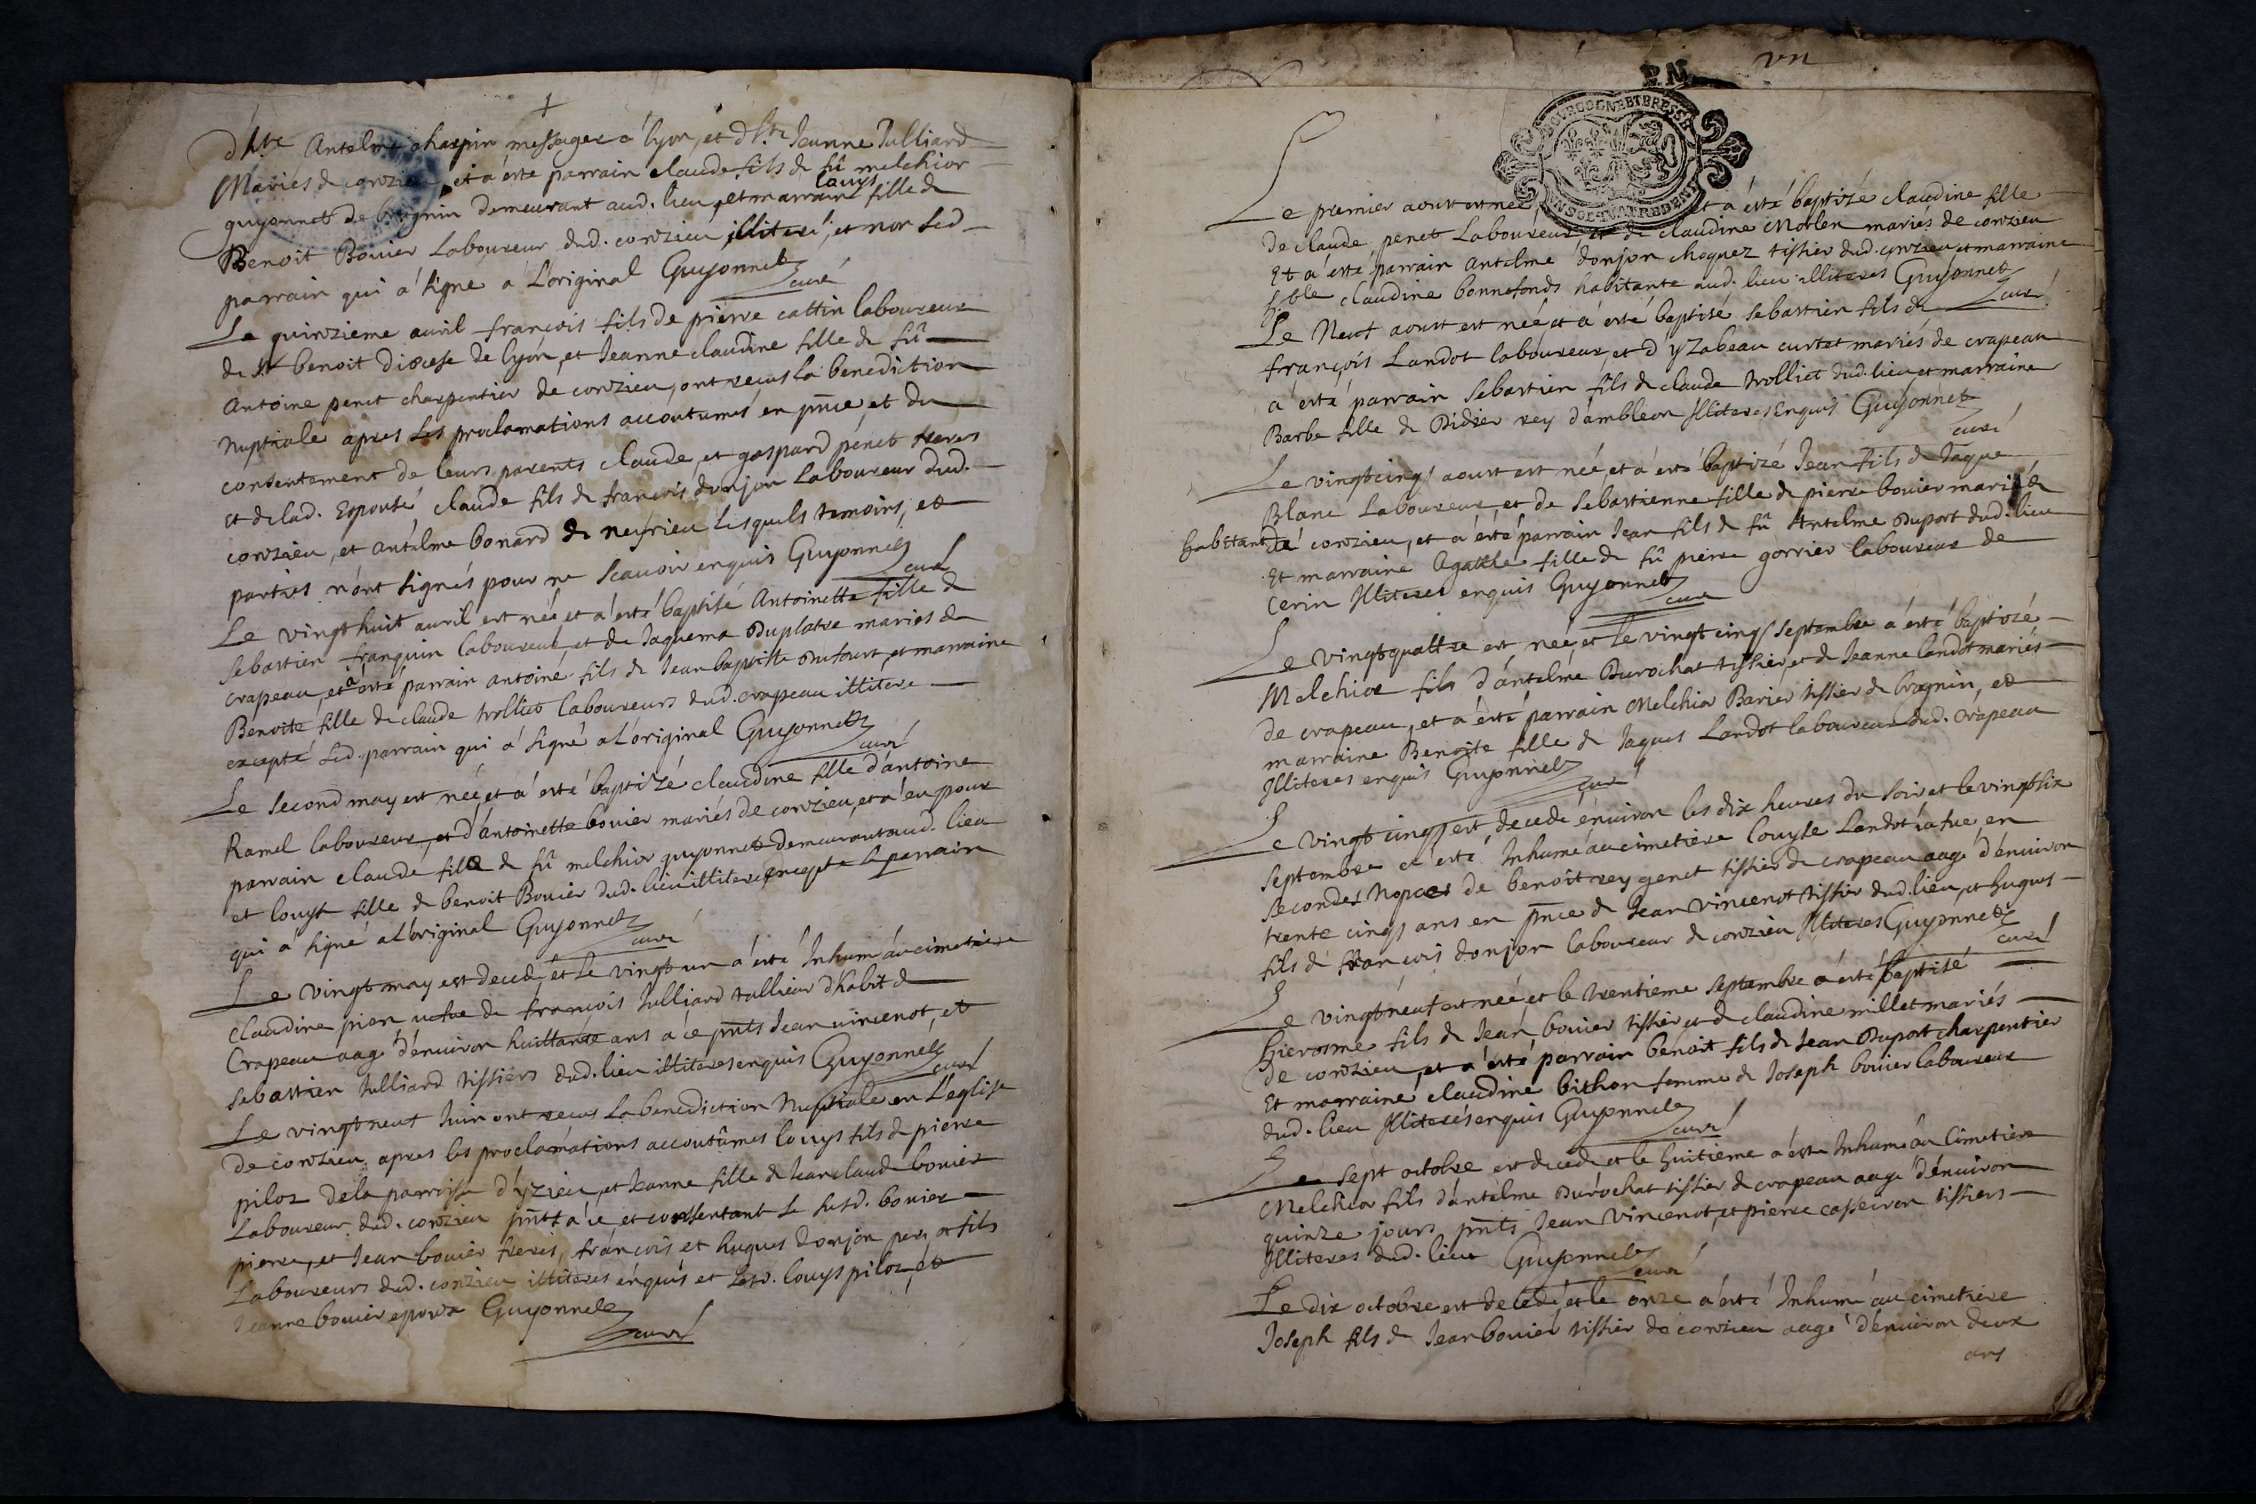 d'hte Antelme charpin messager a lyon, et d hte Jeanne Julliard
Mariés de conzieu, et a esté parrain claude fils de fû melchior
guyonnet de bregnin demeurant aud. lieu, et marraine louys fille de
Benoit Bovier Laboureur dud. conzieu illiteré, et non led
parrain qui a signé a L'original Guyonnet
curé
Le quinzieme avril françois fils de pierre cattin laboureur
de st benoit diocese de lyon, et Jeanne claudine fille de fû
Antoine penet charpentier de conzieu, ont recus la benediction
nuptiale apres les proclamations accoutumes en pnce et du
consentement de leurs parents claude, et gaspard penet freres
et de lad. Espouse claude fils de françois donjon Laboureur dud.
conzieu, et antelme bonard de neyrieu lesquels temoins, et
parties n'ont signés pour ne scavoir enquis Guyonnet
curé
Le vingt huit avril est née et a esté baptisé Antoinette fille de
sebastien franquin laboureur, et de Jaquema Duplatre mariés de
crapeau, et a esté parrain antoine fils de Jean baptiste Dufour, et marraine
Benoite fille de claude trolliet laboureurs dud. crapeau illitere
excepté led. parrain qui a signé a l'original Guyonnet
curé
Le second may est née, et a esté baptizé claudine fille d'antoine
Ramel laboureur, et d'antoinette bovier mariés de conzieu, et a eu pour
parrain claude fils de fû melchior guyonnet demeurant aud. lieu
et louyse fille de benoit Bovier dud. lieu illitere excepte le parrain
qui a signé a l'original Guyonnet
curé
Le vingt may est decedé, et le vingt un a esté Inhumé au cimetiere
claudine pion vefve de françois Julliard tallieur d'habit de
Crapeau aagé d'environ huittante ans a ce pnts Jean vincenot, et
sebastien Julliard tissiers dud. lieu illiteres enquis Guyonnet
curé
Le vingt neuf Juin ont recus la benediction Nuptiale en L'eglise
de conzieu, apres les proclamations accoutûmes louys fils de pierre
piloz de la parroisse d'yzieu, et Jeanne fille de Jean claude bovier
Laboureur dud. conzieu pntt a ce, et consentant le susd. bovier
pierre, et Jean bovier freres, françois et hugues donjon pere et fils
Laboureurs dud. conzieu illiteres enquis et lesd. louys piloz, et
Jeanne bovier epoux Guyonnet
curé
P.N.
vn
BOVRGOGNE ET BRESSE
Le premier aoust est née, et a esté baptizé claudine fille
de claude penet Laboureur, et de claudine Morlen mariés de conzieu
Et a esté parrain antelme donjon choquez tissier dud. conzieu et marraine
hble claudine bonnefonds habitante aud. lieu illiteres Guyonnet
curé
Le Neuf aoust est née et a esté baptisé sebastien fils de
françois Landot laboureur, et d'yzabeau curtet mariés de crapeau
a esté parrain sebastien fils de claude trolliet dud. lieu et marraine
Barbe fille de Didier rey d'ambleon Illiteres Enquis Guyonnet
curé
Le vingt cinq aoust est née, et a esté baptizé Jean fils de Jaque
Blanc Laboureur, et de sebastienne fille de pierre bovier mariés
habitant de conzieu, et a esté parrain Jean fils de fû Antelme Duport dud. lieu
Et marraine agathe fille de fû pierre gorrier laboureur de
Cerin Illiteres enquis Guyonnet
curé
Le vingt quattre est née, et le vingt cinq septembre a esté baptizé
Melchior fils d'antelme Durochat tissier, et de Jeanne landot mariés
de crapeau, et a esté parrain Melchior Barier tissier de bregnin, et
marraine Benoite fille de Jaques Landot laboureur dud. crapeau
Illiteres enquis Guyonnet
curé
Le vingt cinq est decede environ les dix heures du soir et le vingt six
septembre a esté Inhumé au cimetiere louyse Landot vefve en
secondes Nopces de benoit rey genet tissier de crapeau aagé d'environ
trente cinq ans en pnce de Jean vincenot tissier dud. lieu, et hugues
fils de françois donjon laboureur de conzieu Illiteres Guyonnet
curé
Le vingt neuf est née et le trentieme septembre a esté baptisé
hierosme fils de Jean bovier tissier et de claudine millet mariés
de conzieu, et a esté parrain benoit fils de Jean Duport charpentier
Et marraine claudine bithon femme de Joseph bovier laboureur
dud. lieu Illiterés enquis Guyonnet
curé
Le sept octobre est decedé et le huitieme a esté Inhumé au Cimetiere
Melchior fils d'antelme Durochat tissier de crapeau aagé d'environ
quinze jours pnts Jean Vincenot, et pierre casseiron tissiers
Illiteres dud. lieu Guyonnet
curé
Le dix octobre est decedé et le onze a esté Inhumé au cimetiere
Joseph fils de Jean bovier tissier de conzieu aagé d'environ deux
ans